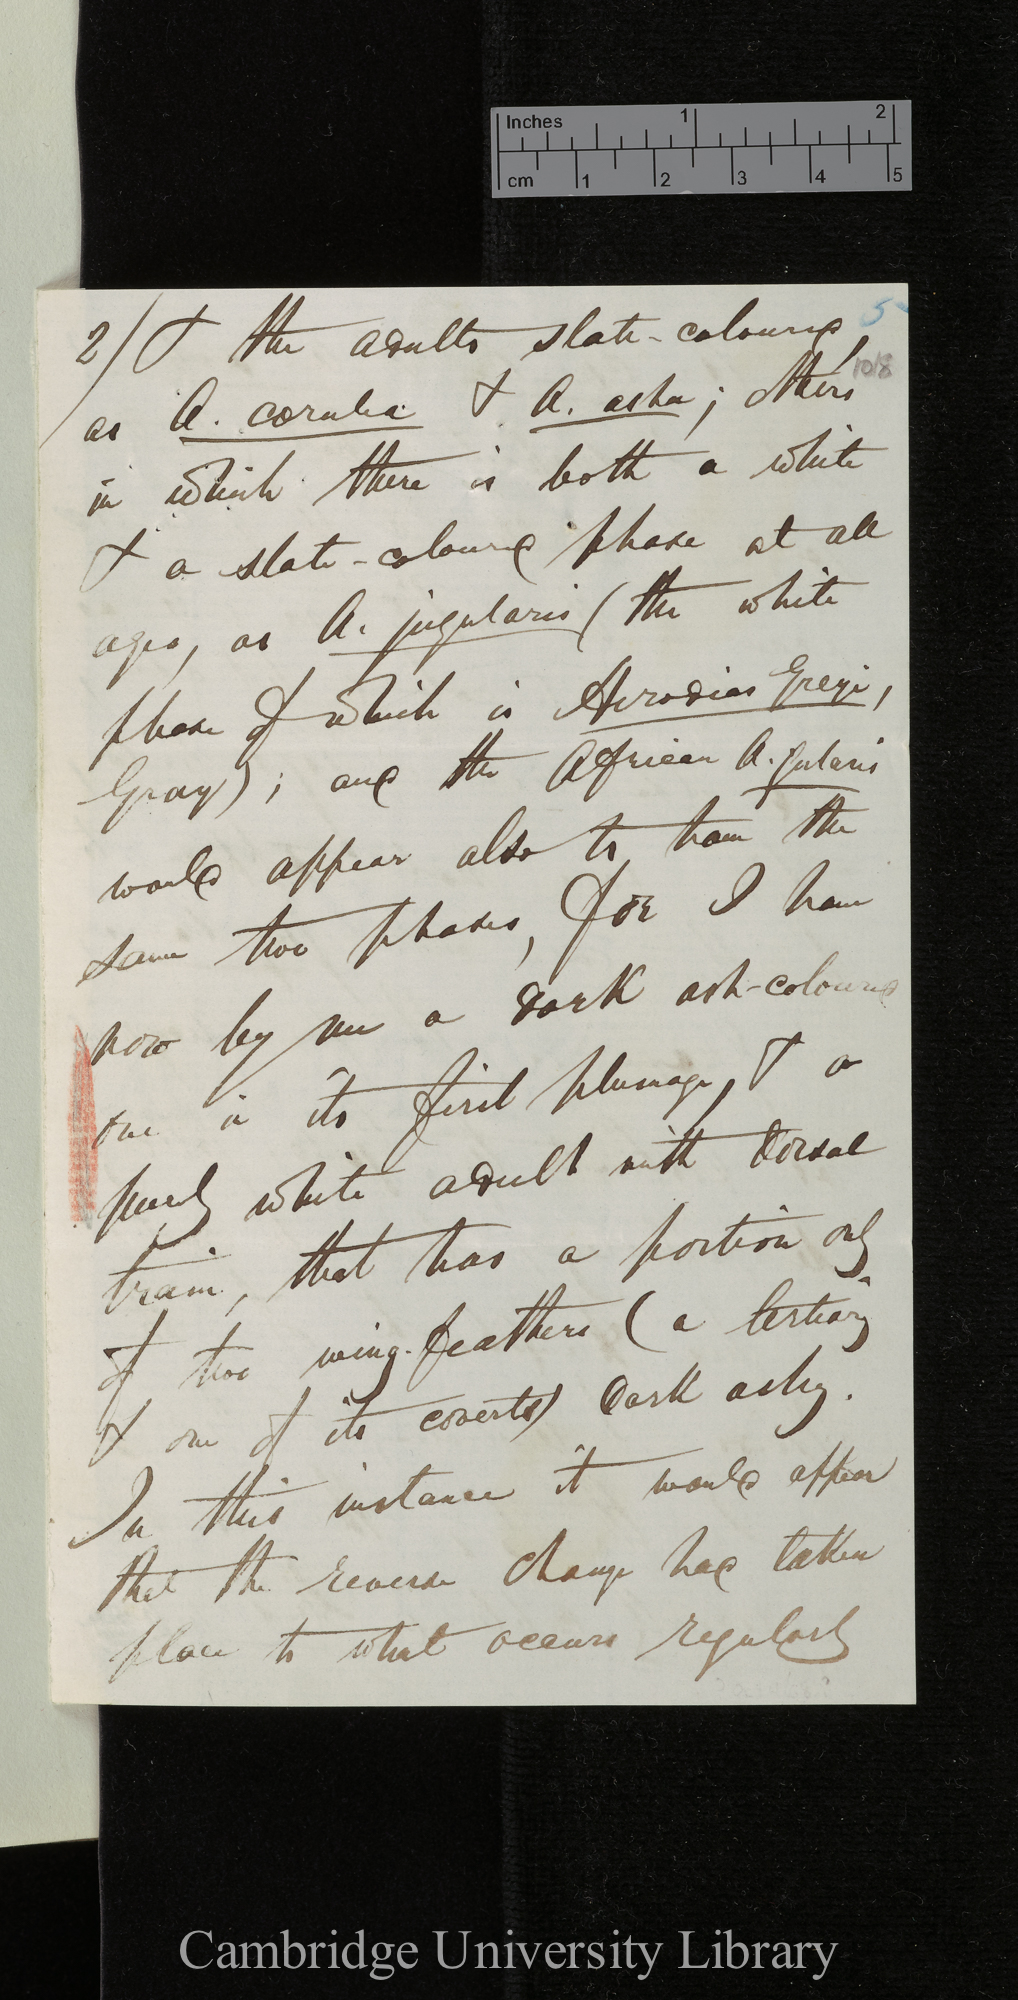 Inches 1 2
cm 1 2 3 4 5
5
108
2/ & the adults slate-coloured,
as A. cœrulea & A. asha; others
in which there is both a white
& a slate-coloured phase at all
ages, as A. jugularis (the white
phase of which is Herodias Greyi,
Gray); and the African A. gularis
would appear also to have the
same two phases, for I have
now by me a dark ash-coloured
one in its first plumage, & a
purely white adult with dorsal
train, that has a portion only
of two wing-feathers (a tertiary
& one of its coverts) dark ashy.
In this instance it would appear
that the reverse change had taken
place to what occurs regularly
Cambridge University Library